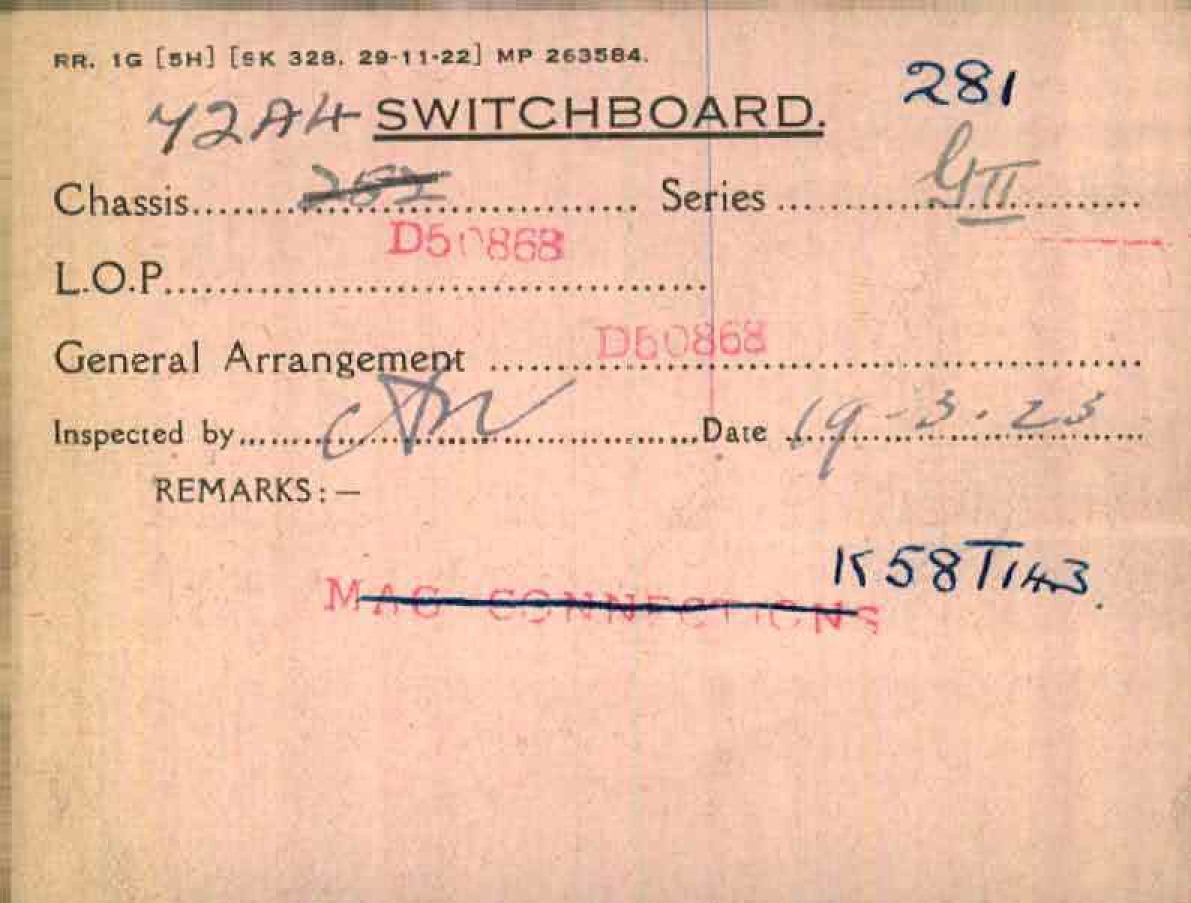 RR. 1G [5H] [SK 328. 29-11-22] MP 263584.
281
42A4 SWITCHBOARD.
Chassis.................... Series ........ GII ........
D50868
L.O.P....................
General Arrangement .......... D50868 ..........
Inspected by.................... Date 19-3-23
REMARKS:—
K58T143.
MAG CONNECTIONS